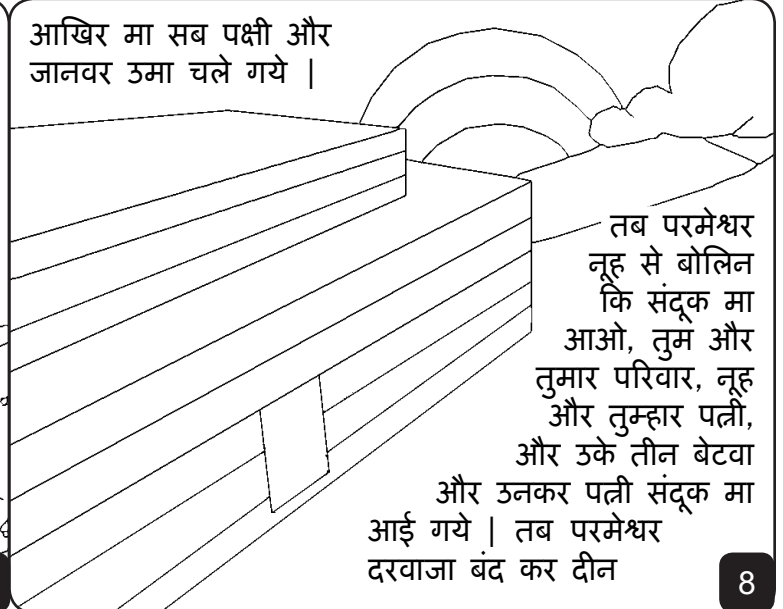 आखिर मा सब पक्षी और
जानवर उमा चले गये |
तब परमेश्वर
नूह से बोलिन
कि संदूक मा
आओ, तुम और
तुमार परिवार, नूह
और तुम्हार पत्नी,
और उके तीन बेटवा
और उनकर पत्नी संदूक मा
आई गये | तब परमेश्वर
दरवाजा बंद कर दीन
8